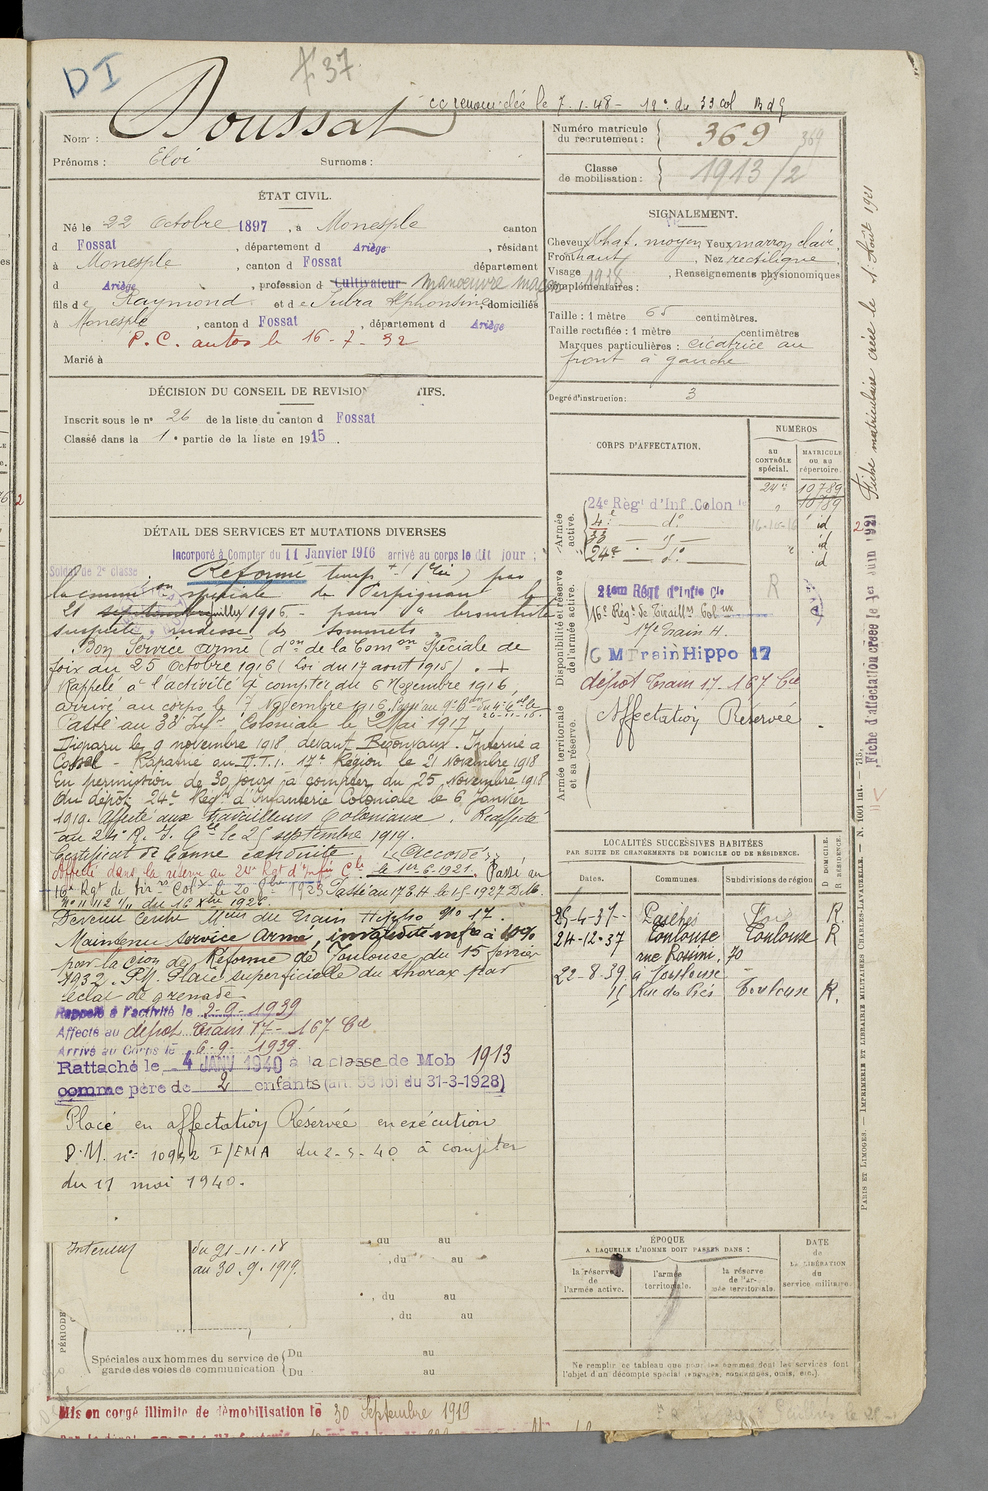 DI
f. 37
Doussat
le 7-1-48 - 19e du 33 col
Nom :
Prénoms : Eloi Surnoms :
Numéro matricule du recrutement : 369 369
Classe de mobilisation : 1913/2
ÉTAT CIVIL.
Né le 22 Octobre 1897, à Monesple canton
d Fossat, département d Ariège, résidant
à Monesple, canton d Fossat département
d Ariège, profession d Cultivateur manœuvre maçon
fils de Raymond et de Subra Alphonsine, domiciliés
à Monesple, canton d Fossat, département d Ariège
P.C. autos le 16-7-32
Marié à
SIGNALEMENT.
Cheveux chat. moyen Yeux marron clair
Front haut, Nez rectiligne
Visage, Renseignements physionomiques
complémentaires : 1938
Taille : 1 mètre 65 centimètres.
Taille rectifiée : 1 mètre centimètres
Marques particulières : cicatrice au
front à gauche
Degré d'instruction : 3
DÉCISION DU CONSEIL DE REVISION TIFS.
Inscrit sous le n° 26 de la liste du canton d Fossat
Classé dans la 1e partie de la liste en 1915.
CORPS D'AFFECTATION.
NUMÉROS
au CONTRÔLE spécial.
MATRICULE OU AU répertoire.
Armée active.
24e Régt d'Inf. Colon le 24e 10789
10789
4e do 16-10-16 id
33 - id
24e - do id
Disponibilité et réserve de l'armée active.
24em Régt d'Infie Cle R
16e Rég. de Tiraill. Col.
17e Train H.
C M Train Hippo 17
dépôt Train 17 - 167 Cie
Affectation Réservée
Armée territoriale et sa réserve.
DÉTAIL DES SERVICES ET MUTATIONS DIVERSES
Incorporé à Compter du 11 Janvier 1916 arrivé au corps le dit jour ;
Soldat de 2e classe
Réformé temp. par
la commission spéciale de Perpignan le
21 septembre 1916 - pour " bronchite
suspecte, rudesse des sommets "
Bon Service armé (don de la Comon Spéciale de
foix du 25 Octobre 1916 (Loi du 17 aout 1915). +
Rappelé à l'activité à compter du 6 Novembre 1916,
arrivé au corps le 7 Novembre 1916.
Passé au 33e Inf. Coloniale le 2 Mai 1917
Disparu le 9 novembre 1918 devant Bezonvaux. Interné à
Cassel - Rapatrié au D.T.I. 17e Région le 21 Novembre 1918
En permission de 30 jours à compter du 25 Novembre 1918
Au dépôt 24e Régt d'Infanterie Coloniale le 6 Janvier
1919. Affecté aux Travailleurs Coloniaux. Réaffecté
au 24e R.I. Cle le 25 septembre 1919.
Certificat de bonne conduite " Accordé "
Affecté dans la réserve au 24e Rgt d'Infie Cle le 1er 6.1921. Passé au
16e Rgt de Tir. Colx le 20 1923 Passé au 17 E.H. le 1-5-1927 D.M.
Devenu Centre Mon du Train Hippo No 17.
Maintenu service armé, invalidité infre à 10%
par la Cion de Réforme de Toulouse du 15 février
1932. P.M. Plaie superficielle du thorax par
éclat de grenade.
Rappelé à l'activité le 2-9-1939
Affecté au dépôt Train 17 - 167 Cie.
Arrivé au Corps le 6-9-1939.
Rattaché le 4 JANV 1940 à la classe de Mob 1913
comme père de 2 enfants (art. 58 loi du 31-3-1928)
Placé en affectation Réservée en exécution
D.M. n° 10952 I/EMA du 2-5-40 à compter
du 11 mai 1940.
LOCALITÉS SUCCESSIVES HABITÉES
PAR SUITE DE CHANGEMENTS DE DOMICILE OU DE RÉSIDENCE.
Dates. Communes. Subdivisions de région D DOMICILE. R RÉSIDENCE.
25-4-31 Foix R.
24-12-37 Toulouse Toulouse R
rue Rossini, 70
22-8-39 à Toulouse "
Rue des Prés Toulouse R.
Intérieur
du 21-11-18
au 30.9.1919.
au au
, du au
, du au
, du au
PÉRIODE
Spéciales aux hommes du service de garde des voies de communication
Du au
Du au
ÉPOQUE
A LAQUELLE L'HOMME DOIT PASSER DANS :
la réserve de l'armée active.
l'armée territoriale.
la réserve de l'armée territoriale.
DATE de LA LIBÉRATION du service militaire.
Ne remplir ce tableau que pour les hommes dont les services font
l'objet d'un décompte spécial (engagés, condamnés, omis, etc.).
Mis en congé illimité de démobilisation le 30 Septembre 1919
Fiche d'affectation créée le 1er Juin 1921 Fiche matriculaire créée le 1. Août 1921
PARIS ET LIMOGES. — IMPRIMERIE ET LIBRAIRIE MILITAIRES CHARLES-LAVAUZELLE. — N. 1001 int. — 715.